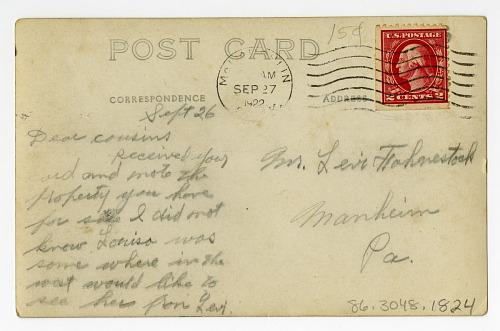 15¢
POST CARD
U.S. POSTAGE
2 CENTS 2
AM
SEP 27
1922
CORRESPONDENCE
ADDRESS
Sept 26
Dear cousins
Received your
card and note the
property you have
for sale I did not
know Louisa was
some where in the
west would like to
see her from Levi.
Mr. Levi Fahnestock
Manheim
Pa.
86.3048.1824